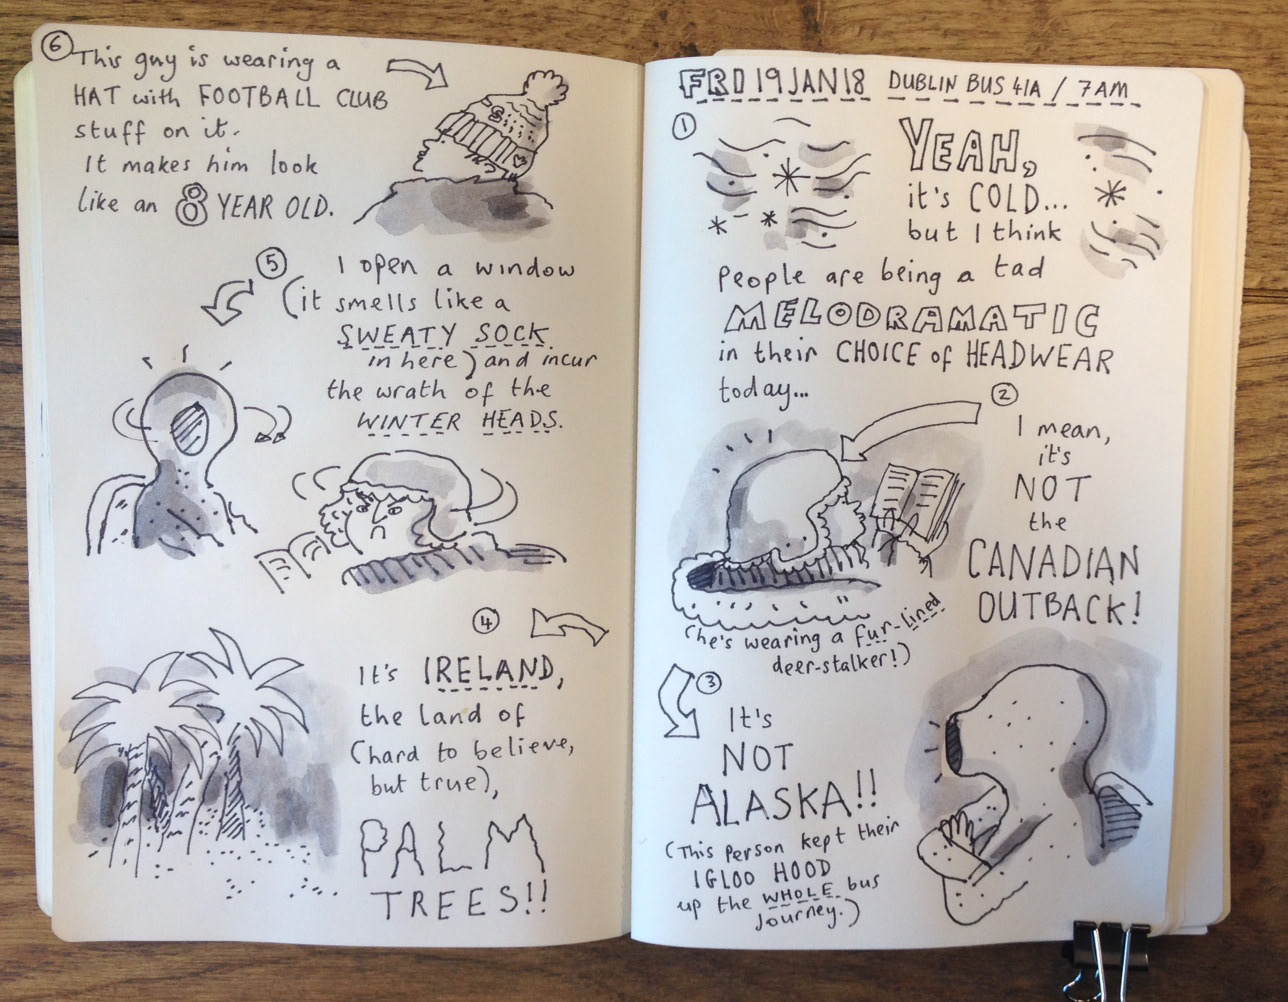 FRI 19 JAN 18 DUBLIN BUS 41A / 7AM
①
YEAH,
it's COLD...
but I think
people are being a tad
MELODRAMATIC
in their CHOICE of HEADWEAR
today...
②
I mean,
it's
NOT
the
CANADIAN
OUTBACK!
(he's wearing a fur-lined
deer-stalker!)
③
It's
NOT
ALASKA!!
(This person kept their
IGLOO HOOD
up the WHOLE bus
journey.)
④
It's IRELAND,
the land of
(hard to believe,
but true),
PALM
TREES!!
⑤
I open a window
(it smells like a
SWEATY SOCK
in here) and incur
the wrath of the
WINTER HEADS.
⑥
This guy is wearing a
HAT with FOOTBALL CLUB
stuff on it.
It makes him look
like an 8 YEAR OLD.